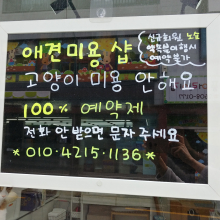 애견미용 샵
신규회원 노쇼
예약불가
고양이 미용 안해요
100% 예약제
전화 안 받으면 문자 주세요
*010-4215-1136*